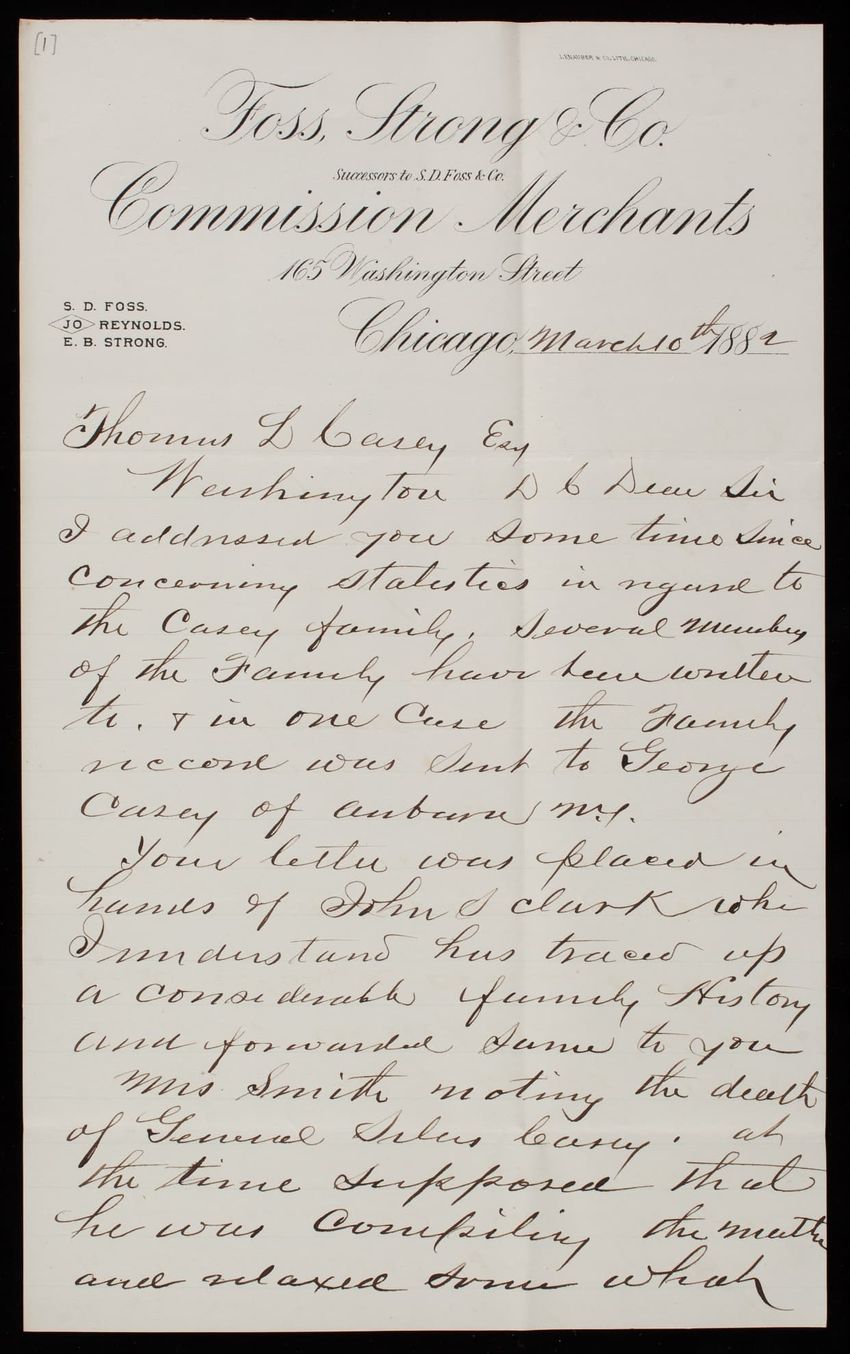 [1]
L. KNAUBER & CO. LITH. CHICAGO.
Foss, Strong & Co.
Successors to S. D. Foss & Co.
Commission Merchants
165 Washington Street
S. D. FOSS.
JO REYNOLDS.
E. B. STRONG.
Chicago, March 10th 1882
Thomas L Casey Esq
Washington D C Dear Sir
I addressed you some time since
concerning statistics in regard to
the Casey family. Several Members
of the Family have been written
to. & in one Case the Family
reccord was sent to George
Casey of auburn N.Y.
Your letter was placed in
hands of John S Clark who
I understand has traced up
a considerable family History
and forwarded same to you
Mrs Smith noting the death
of General Silas Casey. at
the time supposed that
he was Compiling the matter
and relaxed some what